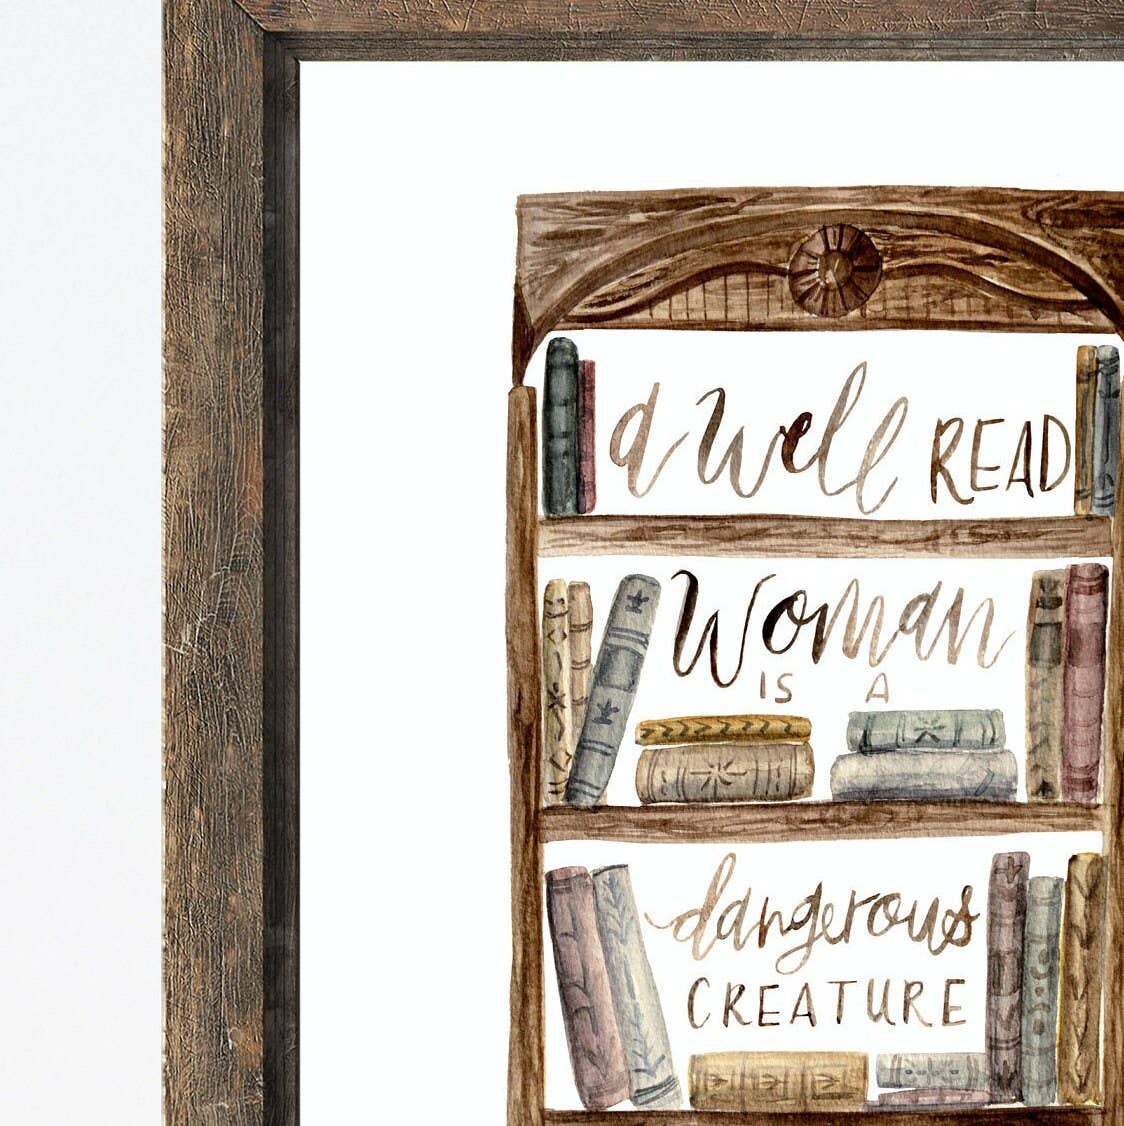 a well READ
Woman
IS A
dangerous
CREATURE